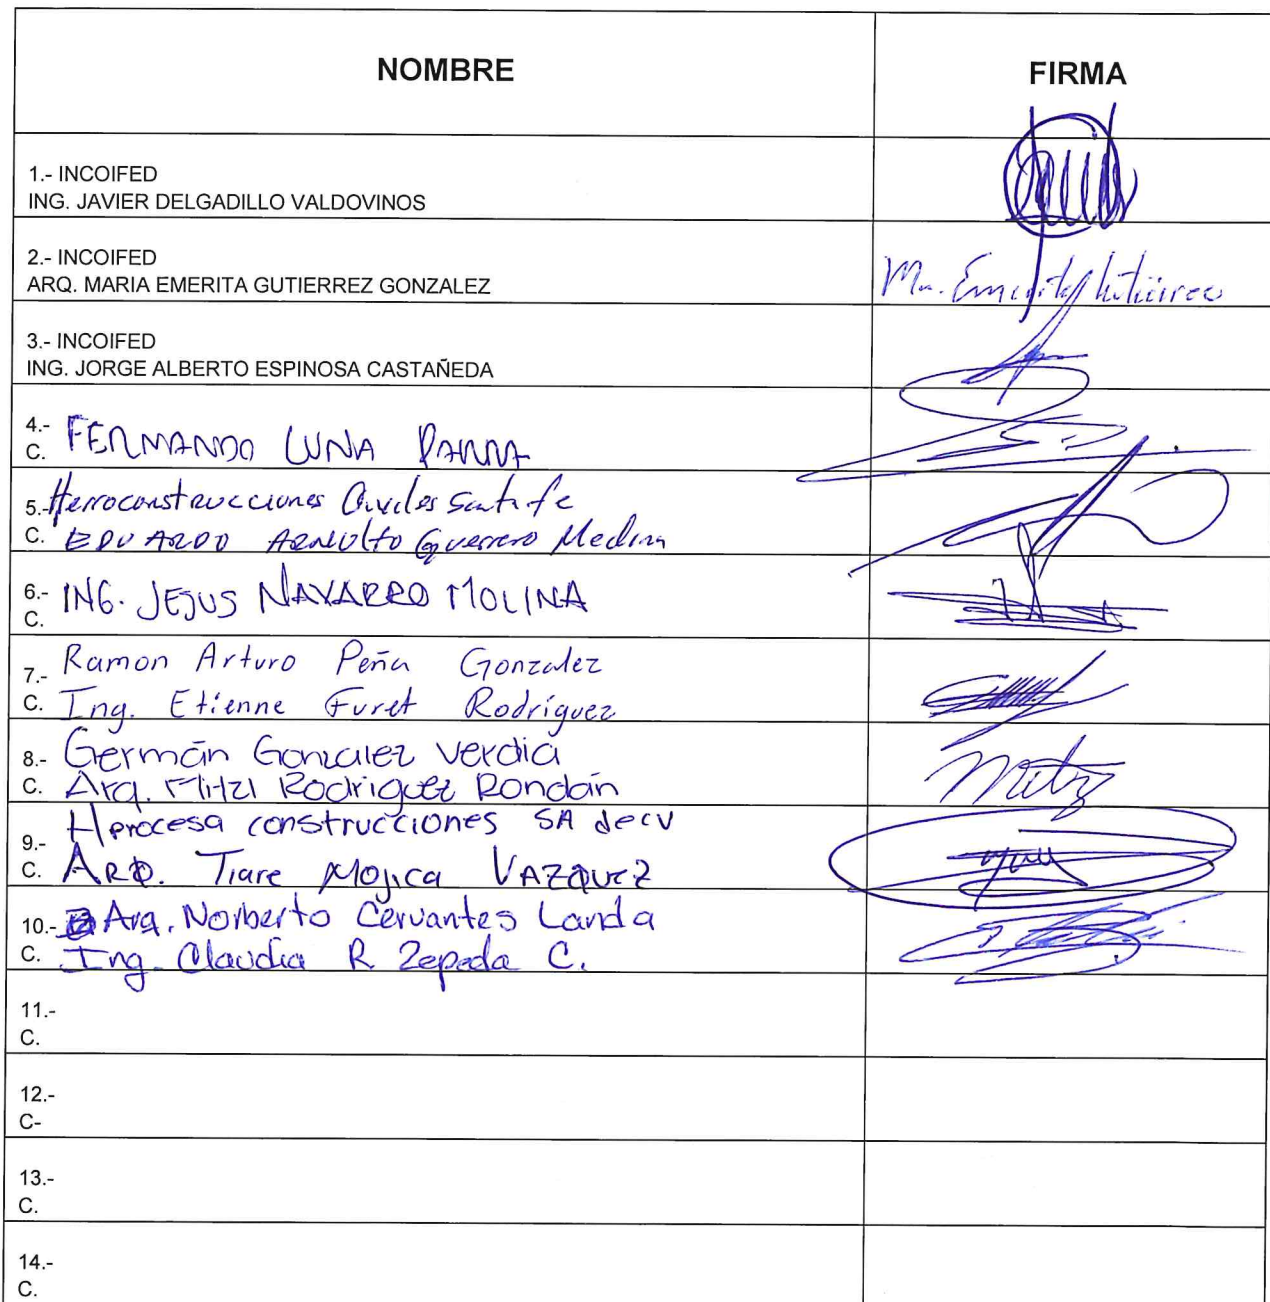 NOMBRE
FIRMA
1.- INCOIFED
ING. JAVIER DELGADILLO VALDOVINOS
2.- INCOIFED
ARQ. MARIA EMERITA GUTIERREZ GONZALEZ
Ma. Emerita Gutiérrez
3.- INCOIFED
ING. JORGE ALBERTO ESPINOSA CASTAÑEDA
4.- FERNANDO LUNA PARRA
C.
5.- Herroconstrucciones Civiles Santa fe
C. EDUARDO ARNULFO Guerrero Medina
6.- ING. JESUS NAVARRO MOLINA
C.
7.- Ramon Arturo Peña Gonzalez
C. Ing. Etienne Furet Rodríguez
8.- Germán Gonzalez Verdia
C. Arq. Mitzi Rodriguez Rondán
Mitzi
9.- Herocesa construcciones SA decv
C. ARQ. Tiare Mojica VAZQUEZ
10.- Arq. Norberto Cervantes Landa
C. Ing. Claudia R Zepeda C.
11.-
C.
12.-
C-
13.-
C.
14.-
C.